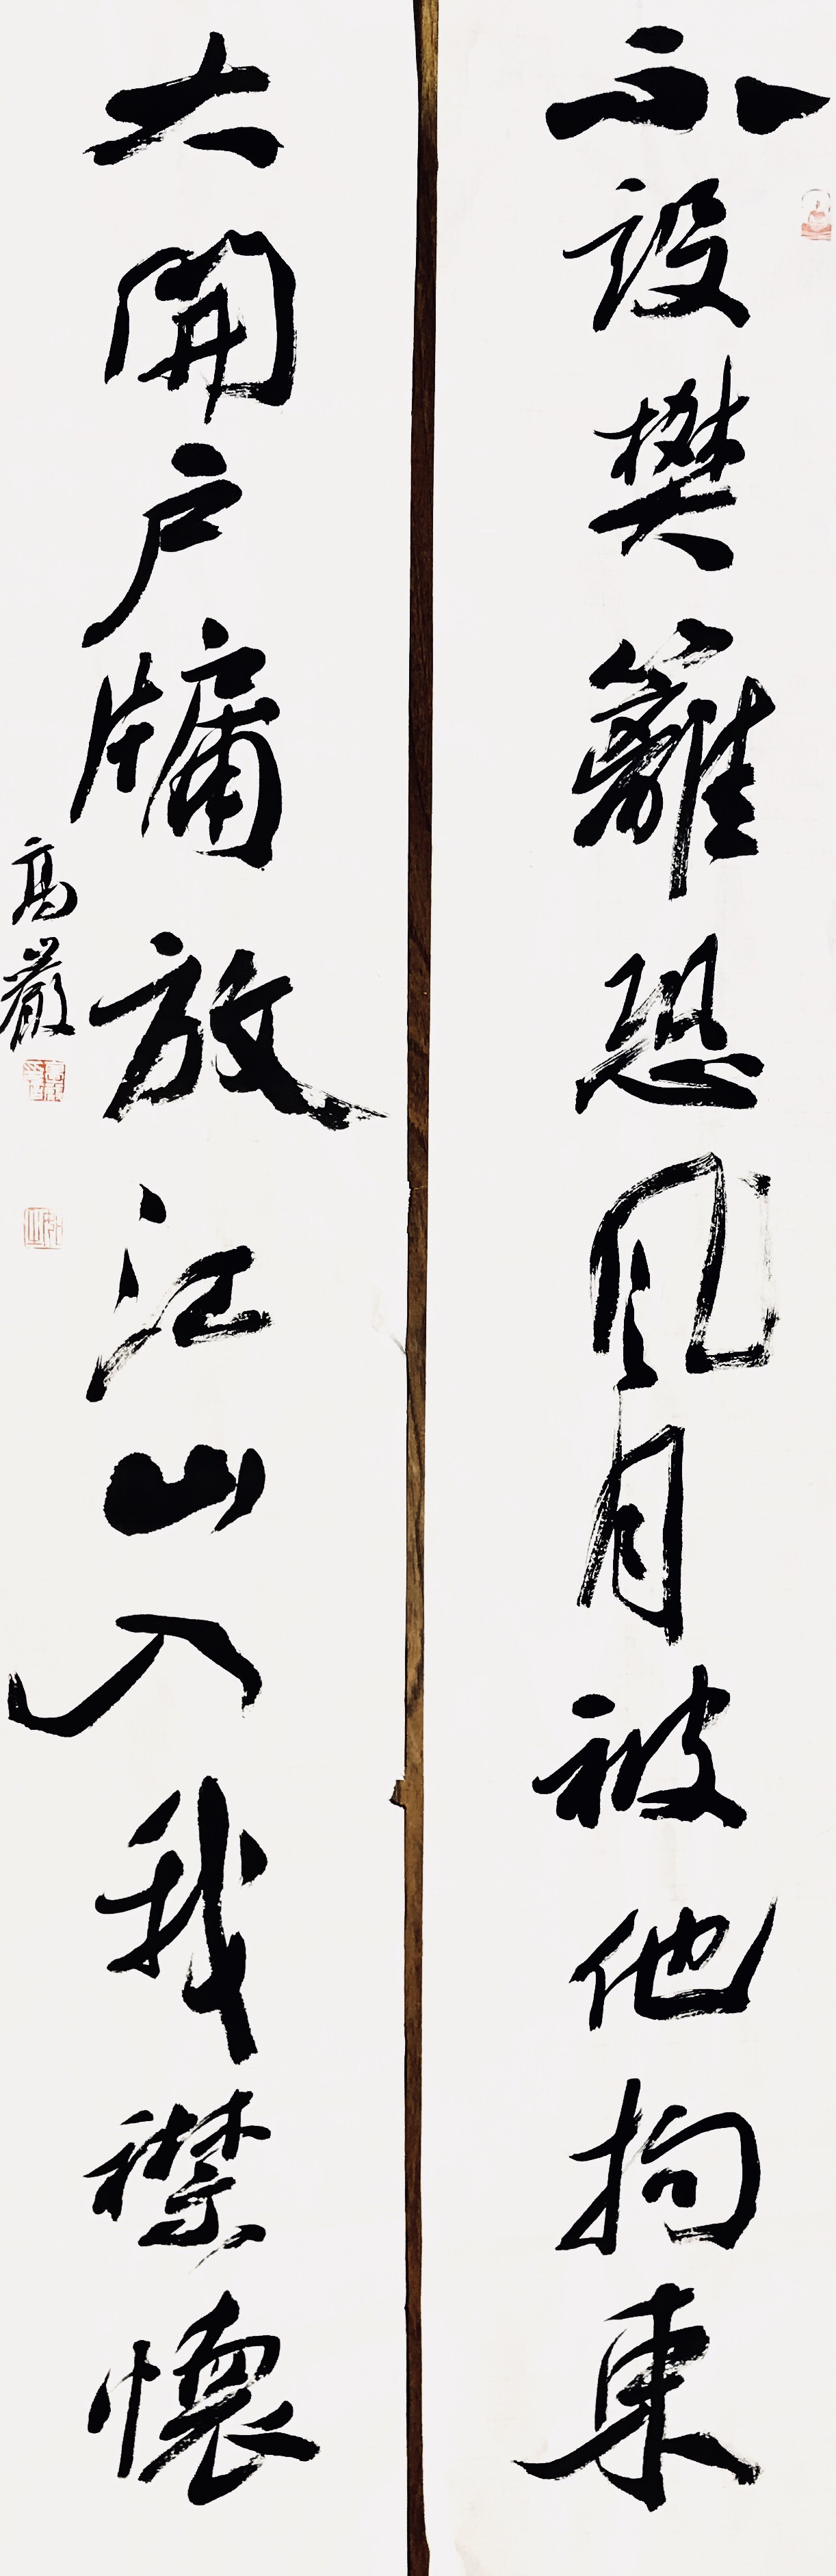 不設樊籬恐風月被他拘束
大開戶牖放江山入我襟懷
高嚴